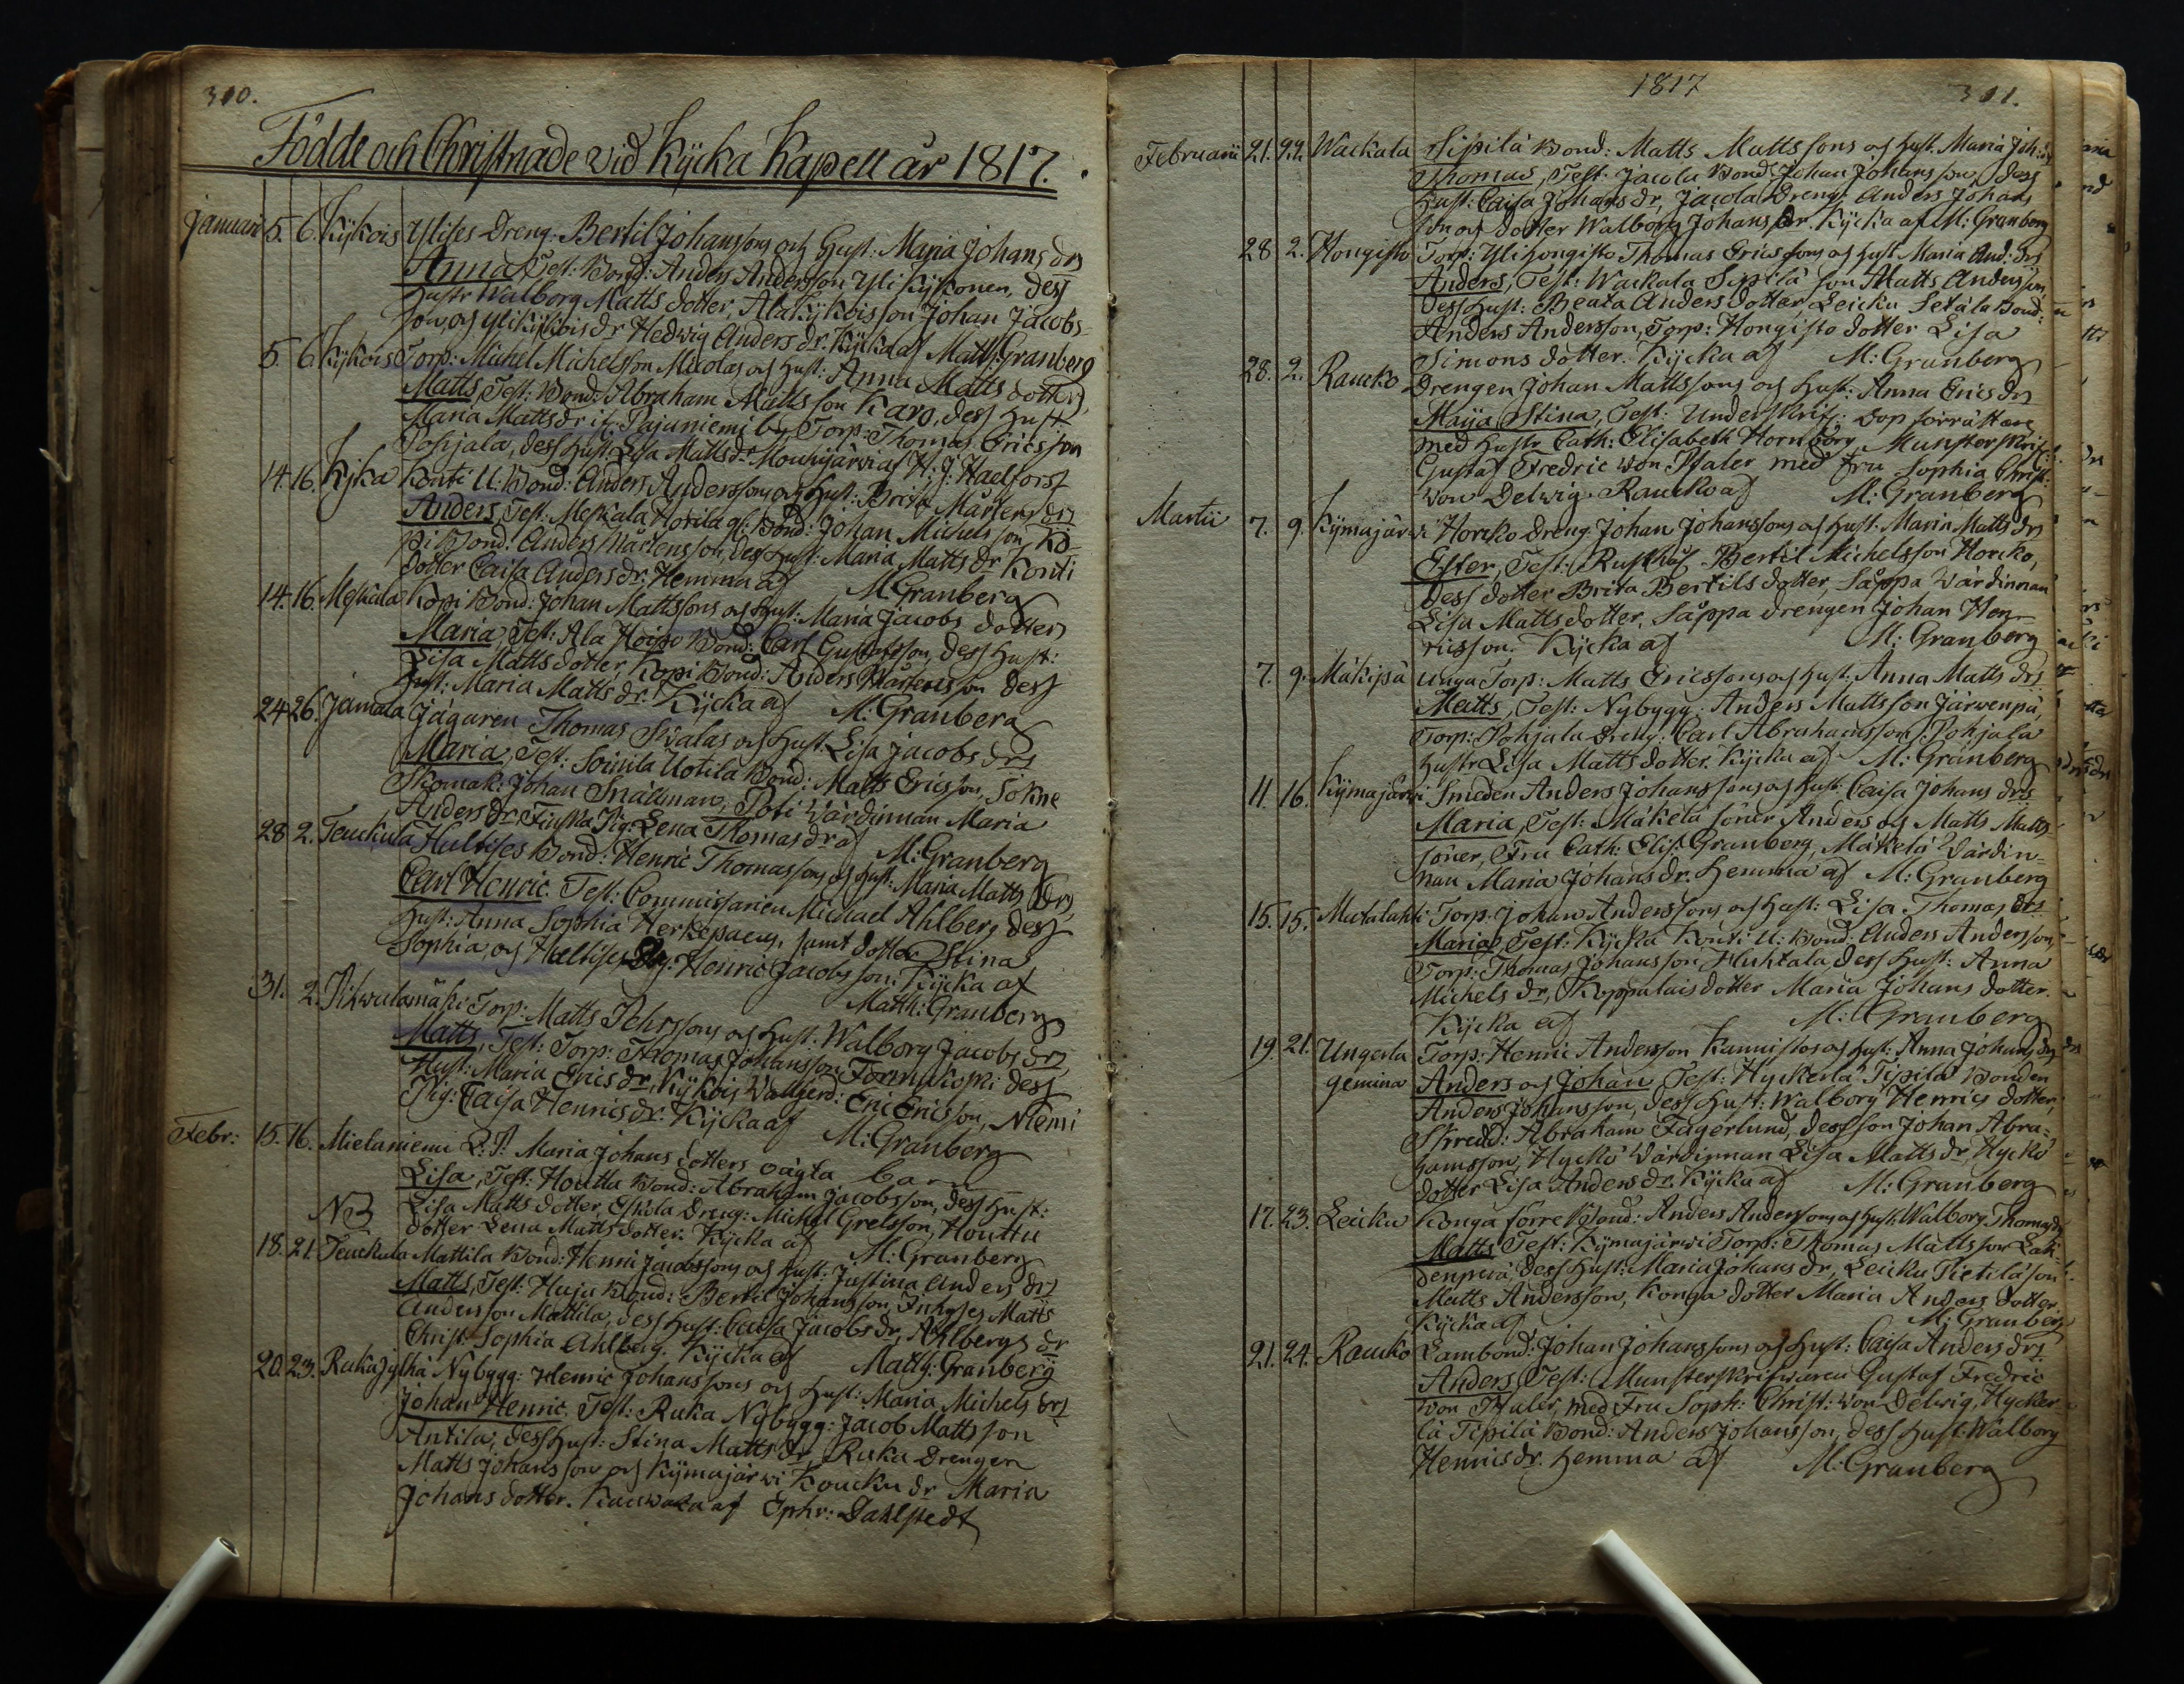 310.
Födde och Christnade vid Kycka Kapell år 1817.
Januari 5. 6. Kykois Ylises Dreng: Bertil Johanssons och Hust: Maria Johans drs
Anna, Test: Bond: Anders Andersson Yli Kykonen, dess
Hustr Walborg Matts dotter, Ala Kykois son Johan Jacobs-
son, och Yli Kykois dr Hedwig Anders dr. Kycka af Matth: Granberg
5. 6. Kykois Torp: Michel Michelsson Nicolas och Hust: Anna Matts dotters
Matts, Test: Bond: Abraham Mattsson Karo, dess Hust
Maria Matts dr if: Pajuniemi by, Torp: Thomas Ericsson
Pohjala, dess Hust: Lisa Matts dr Mouhijärvi af H: J: Haelfors
14. 16. Kyka Konti U: Bond: Anders Anderssons och Hust: Brita Mårtens drs
Anders, Test: Meskala Horila gl: Bond: Johan Michelsson, Ko-
pi Bond: Anders Mårtensson, dess Hust: Maria Matts dr Konti
dotter Caisa Anders dr. Hemma af M: Granberg
14. 16. Meskala Kopi Bond: Johan Mattssons och Hust: Maria Jacobs dotters
Maria, Test: Ala Hoipo Bond: Carl Gustafsson, dess Hust:
Lisa Matts dotter, Kopi Bond: Anders Mårtensson dess
Hust: Maria Matts dr. Kycka af M: Granberg
24. 26. Jamala Jägaren Thomas Swalas och Hust. Lisa Jacobs drs
Maria, Test: Soinila Uotila Bond: Matts Ericsson, Sokne
Skomak: Johan Snällman, Poti Wärdinnan Maria
Anders dr. Finska Pig: Lena Thomas dr af M: Granberg
28. 2. Teuckula Hultises Bond: Henric Thomassons och Hust: Maria Matts drs
Carl Henric. Test: Commissarien Michael Ahlberg, dess
Hust: Anna Sophia Herkepaeus, samt dotter Stina
Sophia, och Haltises Henric Jacobsson. Kycka af
Matth: Granberg
31. 2. Pitwulamäki Torp: Matts Pehrssons och Hust: Walborg Jacobs drs
Matts, Test: Torp: Thomas Johansson Formukoski dess
Hust: Maria Erics dr, Kykois Wallgerd: Eric Ericsson, Niemi
Pig: Caisa Henrics dr. Kycka af M: Granberg
Febr: 15. 16. Mielaniemi Q: P: Maria Johans dotters oägta barn
Lisa, Test: Houttu Bond: Abraham Jacobsson, dess Hust:
NB Lisa Matts dotter, Eskola Dreng: Michel Grelsson, Houttu
dotter Lena Matts dotter. Kycka af M: Granberg
18. 21. Teuckula Mattila Bond: Henric Jacobssons och Hust: Justina Anders drs
Matts, Test: Haju Bond: Bertil Johansson, Matts
Andersson Mattila, dess Hust: Caisa Jacobs dr, Ahlbergs dr
Christ: Sophia Ahlberg. Kycka af Matth: Granberg
20. 23. Rukajylhä Nybygg: Henric Johanssons och Hust: Maria Michels drs
Johan Henric. Test: Ruka Nybygg: Jacob Mattsson
Antila, dess Hust: Stina Matts dr, Ruka Drengen
Matts Johansson och Kymajärwi Koucku dr Maria
Johans dotter. Kauwala af Ephr: Dahlstedt
1817 311.
Februarii 21. 22. Wackala Sipilä Bond: Matts Mattssons och Hust. Maria Joh: drs
Thomas, Test: Jacola Bond Johan Johansson, dess
Hust: Caisa Johans dr, Jacola Dreng: Anders Johans
son och dotter Walborg Johans dr. Kycka af M: Granberg
28. 2. Hongisto Torp: Ylihongisto Thomas Ericssons och Hust Maria And: drs
Anders, Test: Wackala Sipilä son Matts Andersson
dess Hust: Beata Anders dotter, Leicku Setälä Bond:
Anders Andersson, Torp: Hongisto dotter Lisa
Simons dotter. Kycka af M: Granberg
28. 2. Raucko Drengen Johan Mattssons och Hust: Anna Erics drs
Maija Stina, Test: Underskrif: Dop förrättare
med Hustr Cath: Elisabeth Hornborg, Munsterskrif:
Gustaf Fredric von Pfaler med Fru Sophia Christ:
von Delwig. Raucko af M: Granberg
Martii 7. 9. Kymajärwi Horcko Dreng Johan Johanssons och Hust: Maria Matts drs
Ester, Test: Rusth: Bertil Michelsson Horcko,
dess dotter Brita Bertils dotter, Såppa Wärdinnan
Lisa Matts dotter, Såppa Drengen Johan Hen-
ricsson. Kycka af M: Granberg
7. 9. Mäkipä unga Torp: Matts Ericssons och Hust: Anna Matts drs
Matts, Test: Nybygg: Anders Mattsson Järwenpä,
Torp: Pohjala Dreng: Carl Abrahamsson, Pohjala
Hustr Lisa Matts dotter. Kycka af M: Granberg
11. 16. Kymajärwi Smeden Anders Johanssons och Hust: Caisa Johans drs
Maria, Test: Mäkelä söner Anders och Matts Matts
söner, Fru Cath: Elis: Granberg, Mäkelä Wärdin=
nan Maria Johans dr. Hemma af M: Granberg
15. 15. Mutalahti Torp: Johan Anderssons och Hust: Lisa Thomas drs
Maria, Test: Kycka Konti U: Bond: Anders Andersson
Torp: Thomas Johansson Huhtala, dess Hust: Anna
Michels dr, Koppalais dotter Maria Johans dotter.
Kycka af M: Granberg
19. 21. Ungerla Torp: Henric Andersson Kannistos och Hust: Anna Johans drs
gemina Anders och Johan, Test: Hyckerlä Tipilä Bonden
Anders Johansson, dess Hust: Walborg Henrics dotter,
Skredd: Abraham Fagerlund, dess son Johan Abra=
hamsson, Hyckö Wärdinnan Lisa Matts dr, Hyckö
dotter Lisa Anders dr. Kycka af M: Granberg
17. 23. Leicku Konga förre Bond: Anders Anderssons och Hust: Walborg Thomas drs
Matts Test: Kymajärwi Torp: Thomas Mattsson Läh-
denperä dess Hust: Maria Johans dr, Leicku Pietilä son
Matts Andersson, Konga dotter Maria Anders dotter.
Kycka af M: Granberg
21. 24. Raucko Lambond: Johan Johanssons och Hust: Caisa Anders drs
Anders, Test: Munsterskrifwaren Gustaf Fredric
von Pfaler, med Fru Soph: Christ: von Delwig, Hycker-
lä Tipilä Bond: Anders Johansson, dess Hust: Walborg
Henrics dr. Hemma af M: Granberg